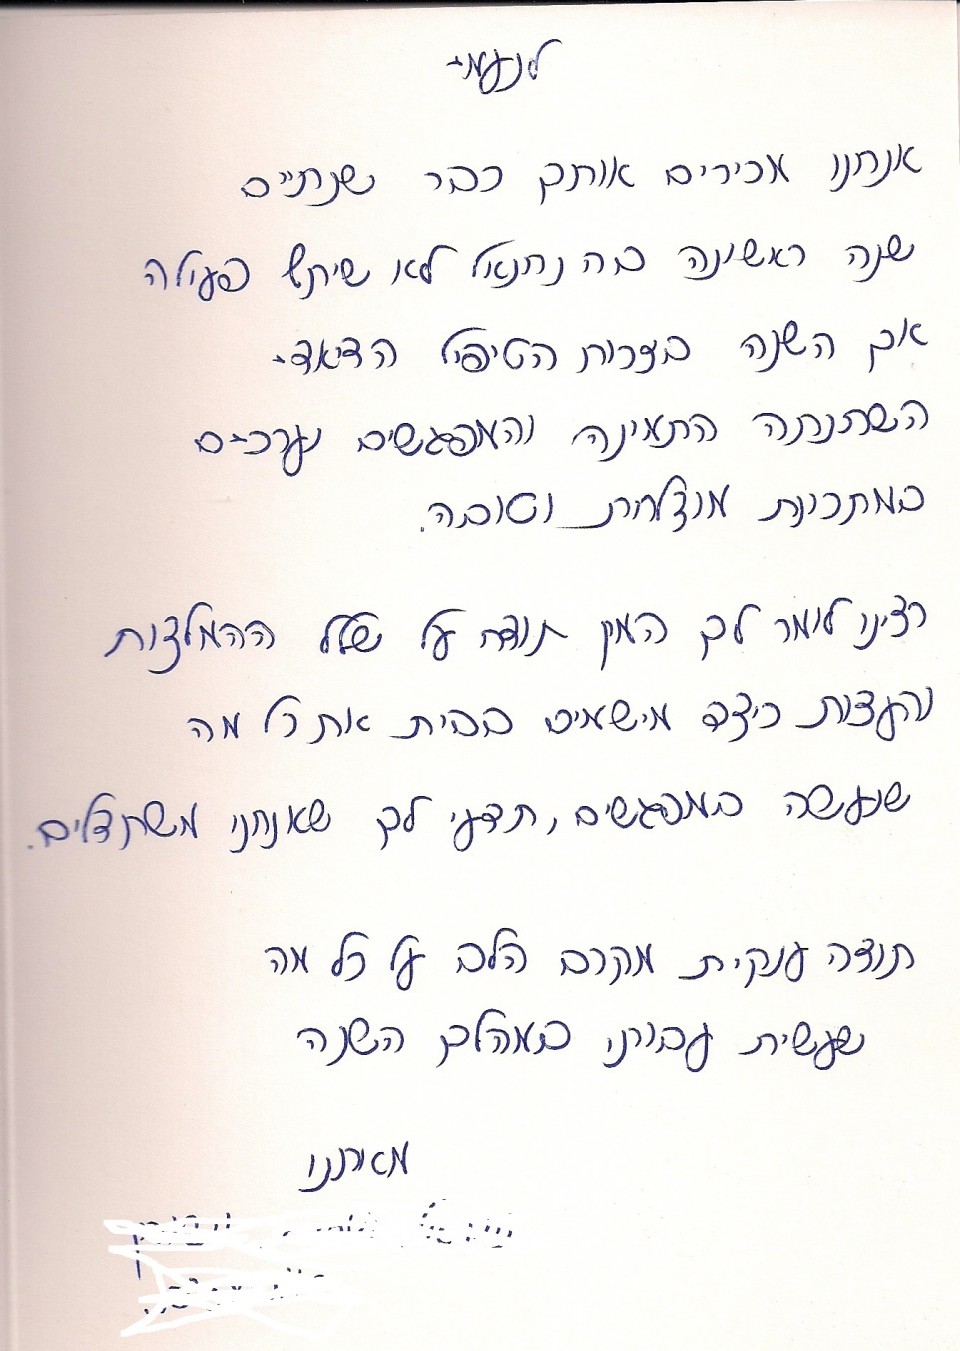 לנעמי
אנחנו מכירים אותך כבר שנתיים
שנה ראשונה בה נתנאל לא שיתף פעולה
אך השנה בצורת הטיפול הדיאדי
השתנתה התמונה והמפגשים נערכים
במתכונת מוצלחת וטובה.
רצינו לומר לך המון תודה על שלל ההמלצות
והעצות כיצד מישמים בבית את כל מה
שנעשה במפגשים, תדעי לך שאנחנו משתדלים.
תודה ענקית מקרב הלב על כל מה
שעשית עבורנו במהלך השנה
מאיתנו